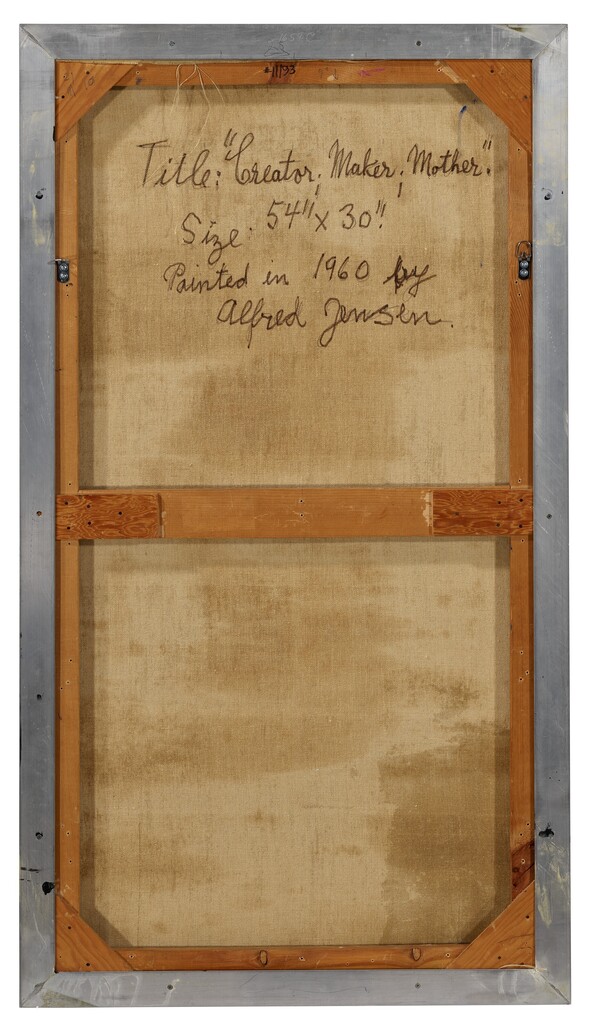 Title: "Creator, Maker, Mother".
Size: 54" x 30".
Painted in 1960 by
Alfred Jensen.